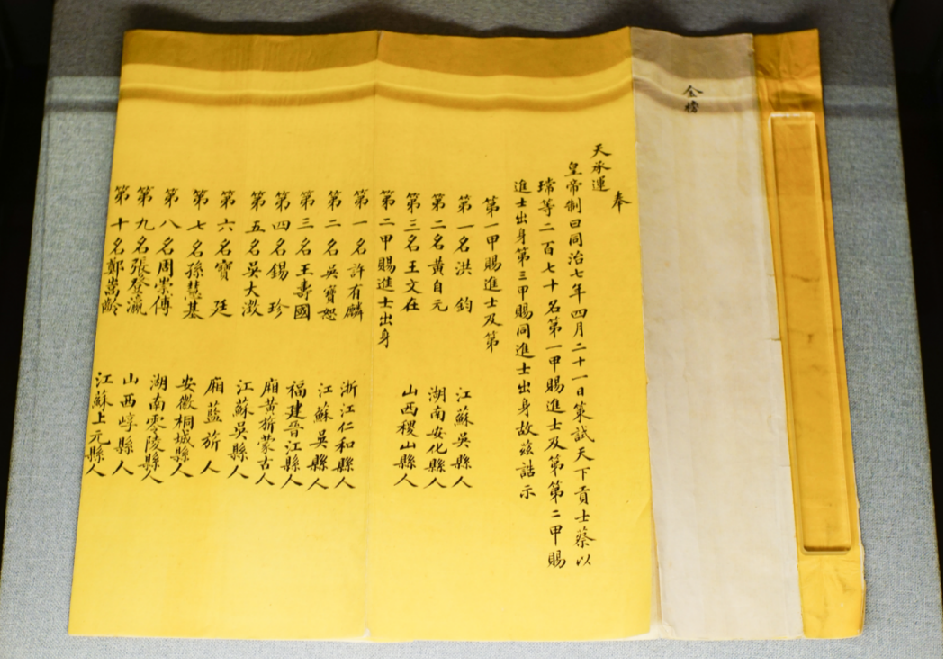 金榜
奉
天承運
皇帝制曰同治七年四月二十一日策試天下貢士蔡以
瑺等二百七十名第一甲賜進士及第第二甲賜
進士出身第三甲賜同進士出身故茲誥示
第一甲賜進士及第
第一名洪鈞 江蘇吳縣人
第二名黃自元 湖南安化縣人
第三名王文在 山西稷山縣人
第二甲賜進士出身
第一名許有麟 浙江仁和縣人
第二名吳寶恕 江蘇吳縣人
第三名王壽國 福建晉江縣人
第四名錫珍 廂黃旂蒙古人
第五名吳大澂 江蘇吳縣人
第六名寶廷 廂藍旂人
第七名孫慧基 安徽桐城縣人
第八名周崇傅 湖南零陵縣人
第九名張登瀛 山西崞縣人
第十名鄭嵩齡 江蘇上元縣人